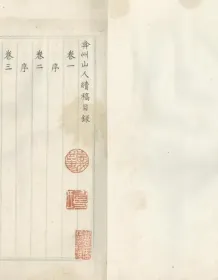 弇州山人續稿目録
卷一
序
卷二
序
卷三